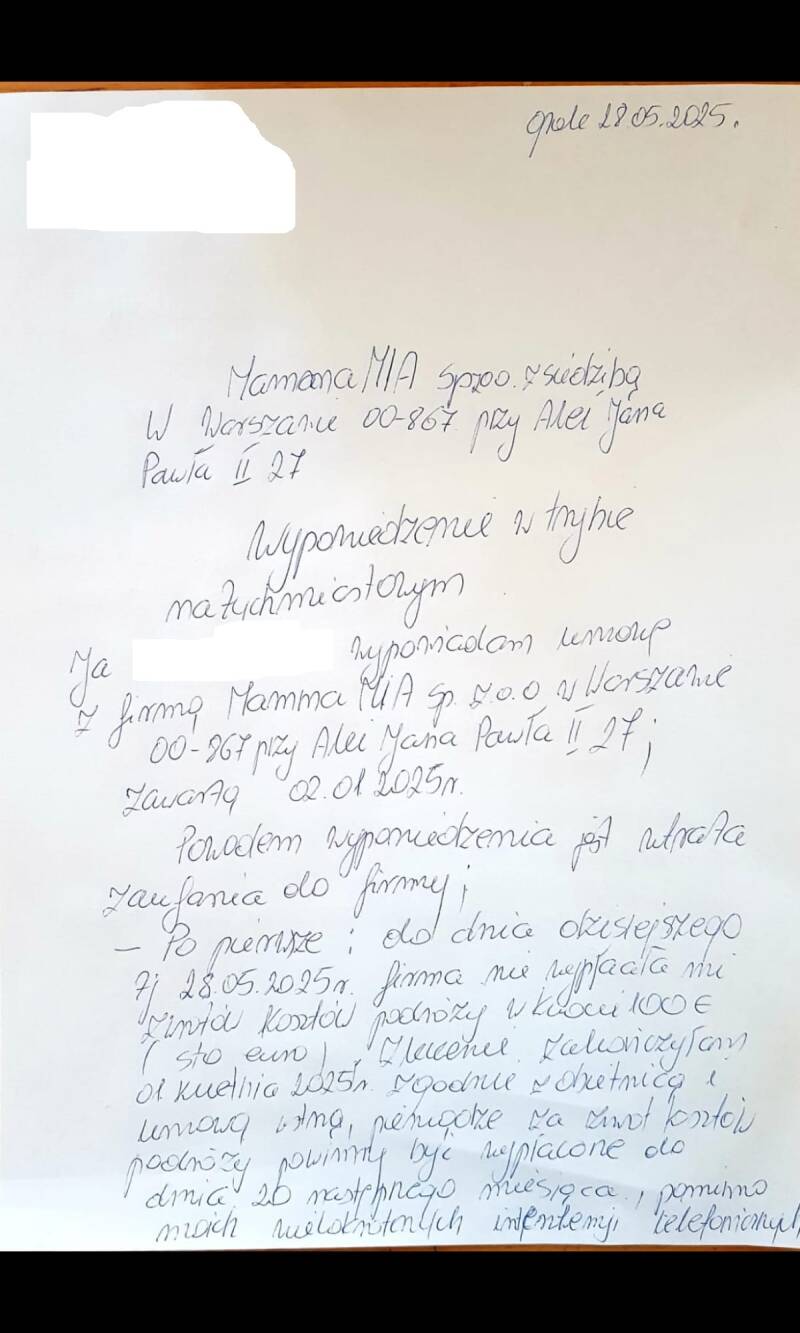 Opole 28.05.2025.
Mamma MIA sp zoo. z siedzibą
W Warszawie 00-867 przy Alei Jana
Pawła II 27
Wypowiedzenie w trybie
natychmiastowym
Ja wypowiadam umowę
z firmą Mamma MIA Sp. z.o.o w Warszawie
00-867 przy Alei Jana Pawła II 27;
zawartą 02.01.2025r.
Powodem wypowiedzenia jest utrata
zaufania do firmy;
- Po pierwsze: do dnia dzisiejszego
tj 28.05.2025r. firma nie wypłaciła mi
zwrotów kosztów podróży w kwocie 100€
(sto euro). Zlecenie zakończyłam
01 kwietnia 2025r. zgodnie z obietnicą i
umową ustną, pieniądze za zwrot kosztów
podróży powinny być wypłacone do
dnia 20 następnego miesiąca, pomimo
moich wielokrotnych telefonicznych